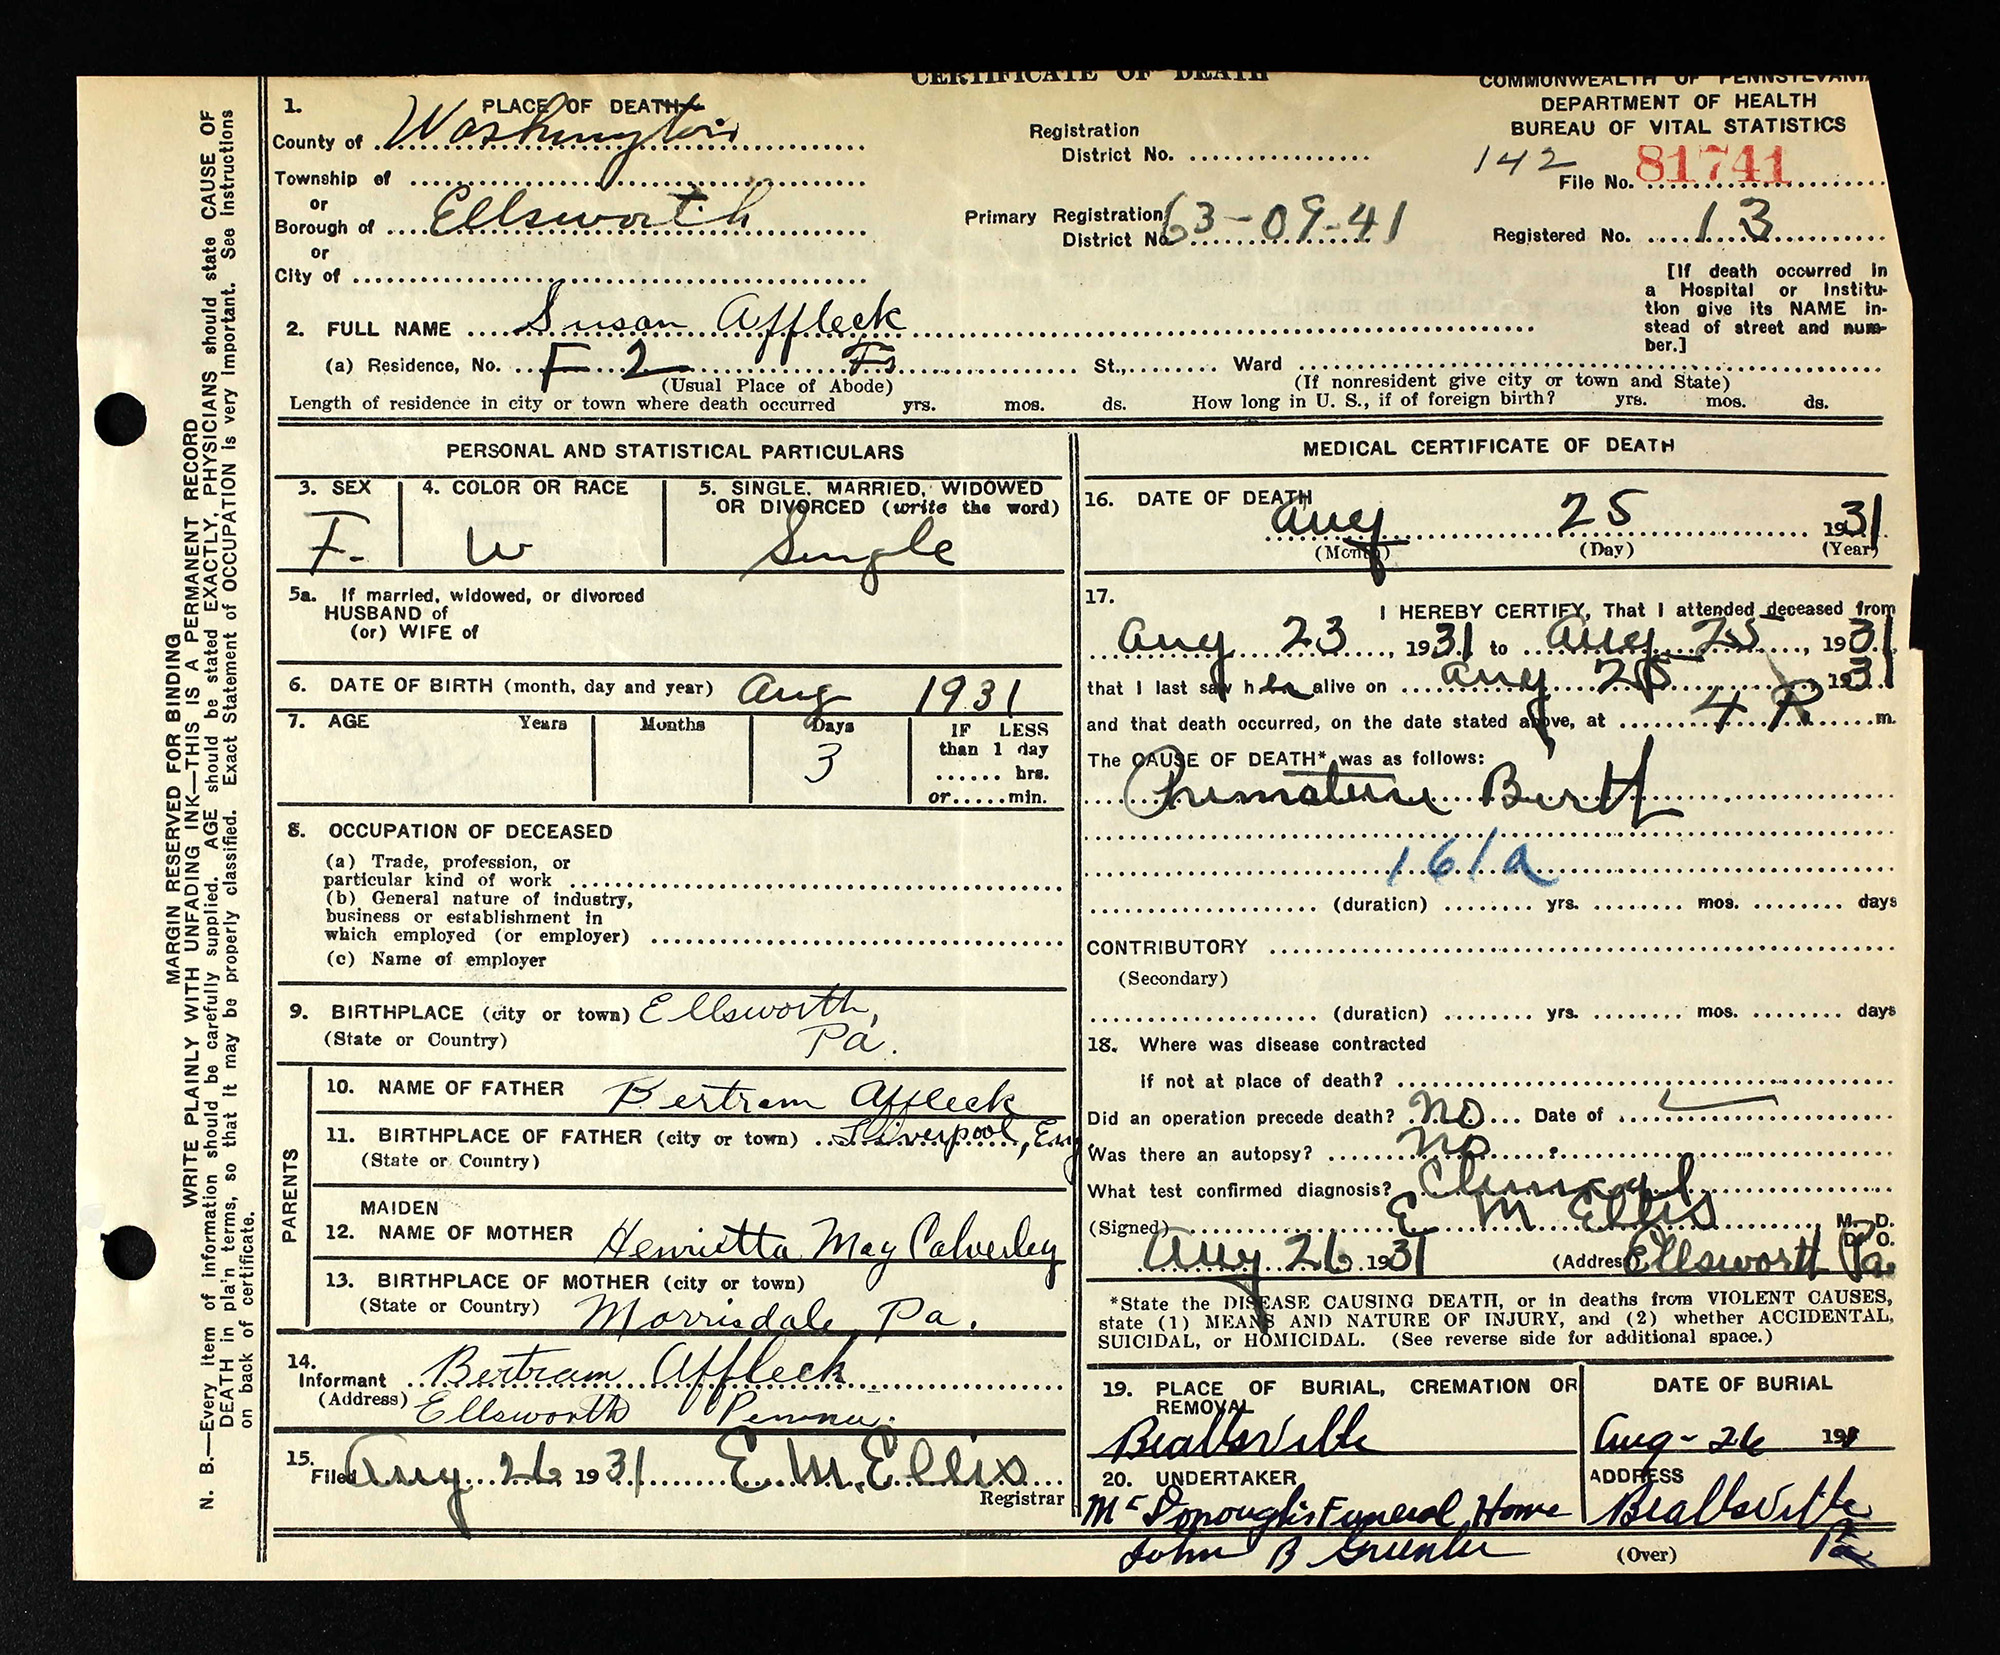 CERTIFICATE OF DEATH
COMMONWEALTH OF PENNSYLVANIA
DEPARTMENT OF HEALTH
BUREAU OF VITAL STATISTICS
1. PLACE OF DEATH
County of Washington
Registration
District No.
142 File No. 81741
Township of
or
Borough of Ellsworth
Primary Registration
District No. 63-09-41
Registered No. 13
or
City of
[If death occurred in
a Hospital or Institu-
tion give its NAME in-
stead of street and num-
ber.]
2. FULL NAME Susan Affleck
(a) Residence, No. F 2 St., Ward
(Usual Place of Abode) (If nonresident give city or town and State)
Length of residence in city or town where death occurred yrs. mos. ds. How long in U. S., if of foreign birth? yrs. mos. ds.
PERSONAL AND STATISTICAL PARTICULARS
3. SEX
F.
4. COLOR OR RACE
W
5. SINGLE, MARRIED, WIDOWED
OR DIVORCED (write the word)
Single
5a. If married, widowed, or divorced
HUSBAND of
(or) WIFE of
6. DATE OF BIRTH (month, day and year) Aug 1931
7. AGE Years Months Days IF LESS
than 1 day
3
hrs.
or min.
8. OCCUPATION OF DECEASED
(a) Trade, profession, or
particular kind of work
(b) General nature of industry,
business or establishment in
which employed (or employer)
(c) Name of employer
9. BIRTHPLACE (city or town) Ellsworth,
(State or Country) Pa.
PARENTS
10. NAME OF FATHER Bertram Affleck
11. BIRTHPLACE OF FATHER (city or town) Liverpool, Eng
(State or Country)
MAIDEN
12. NAME OF MOTHER Henrietta May Calverley
13. BIRTHPLACE OF MOTHER (city or town)
(State or Country) Morrisdale, Pa.
14.
Informant Bertram Affleck
(Address) Ellsworth Penna.
15.
Filed Aug 26 1931 E. M. Ellis
Registrar
MEDICAL CERTIFICATE OF DEATH
16. DATE OF DEATH
Aug 25 1931
(Month) (Day) (Year)
17.
I HEREBY CERTIFY, That I attended deceased from
Aug 23, 1931 to Aug 25, 1931
that I last saw her alive on Aug 25 1931
and that death occurred, on the date stated above, at 4 P m.
The CAUSE OF DEATH* was as follows:
Premature Birth
161a
(duration) yrs. mos. days
CONTRIBUTORY
(Secondary)
(duration) yrs. mos. days
18. Where was disease contracted
if not at place of death?
Did an operation precede death? No Date of
Was there an autopsy? No
What test confirmed diagnosis? Clinical
(Signed) E M Ellis M. D.
D. O.
Aug 26 1931 (Address) Ellsworth Pa.
*State the DISEASE CAUSING DEATH, or in deaths from VIOLENT CAUSES,
state (1) MEANS AND NATURE OF INJURY, and (2) whether ACCIDENTAL,
SUICIDAL, or HOMICIDAL. (See reverse side for additional space.)
19. PLACE OF BURIAL, CREMATION OR
REMOVAL
Beallsville
DATE OF BURIAL
Aug - 26 1931
20. UNDERTAKER
McDonough's Funeral Home
John B Greenlee
ADDRESS
Beallsville
Pa
(Over)
MARGIN RESERVED FOR BINDING
WRITE PLAINLY WITH UNFADING INK—THIS IS A PERMANENT RECORD
N. B.—Every item of information should be carefully supplied. AGE should be stated EXACTLY. PHYSICIANS should state CAUSE OF
DEATH in plain terms, so that it may be properly classified. Exact Statement of OCCUPATION is very important. See Instructions
on back of certificate.